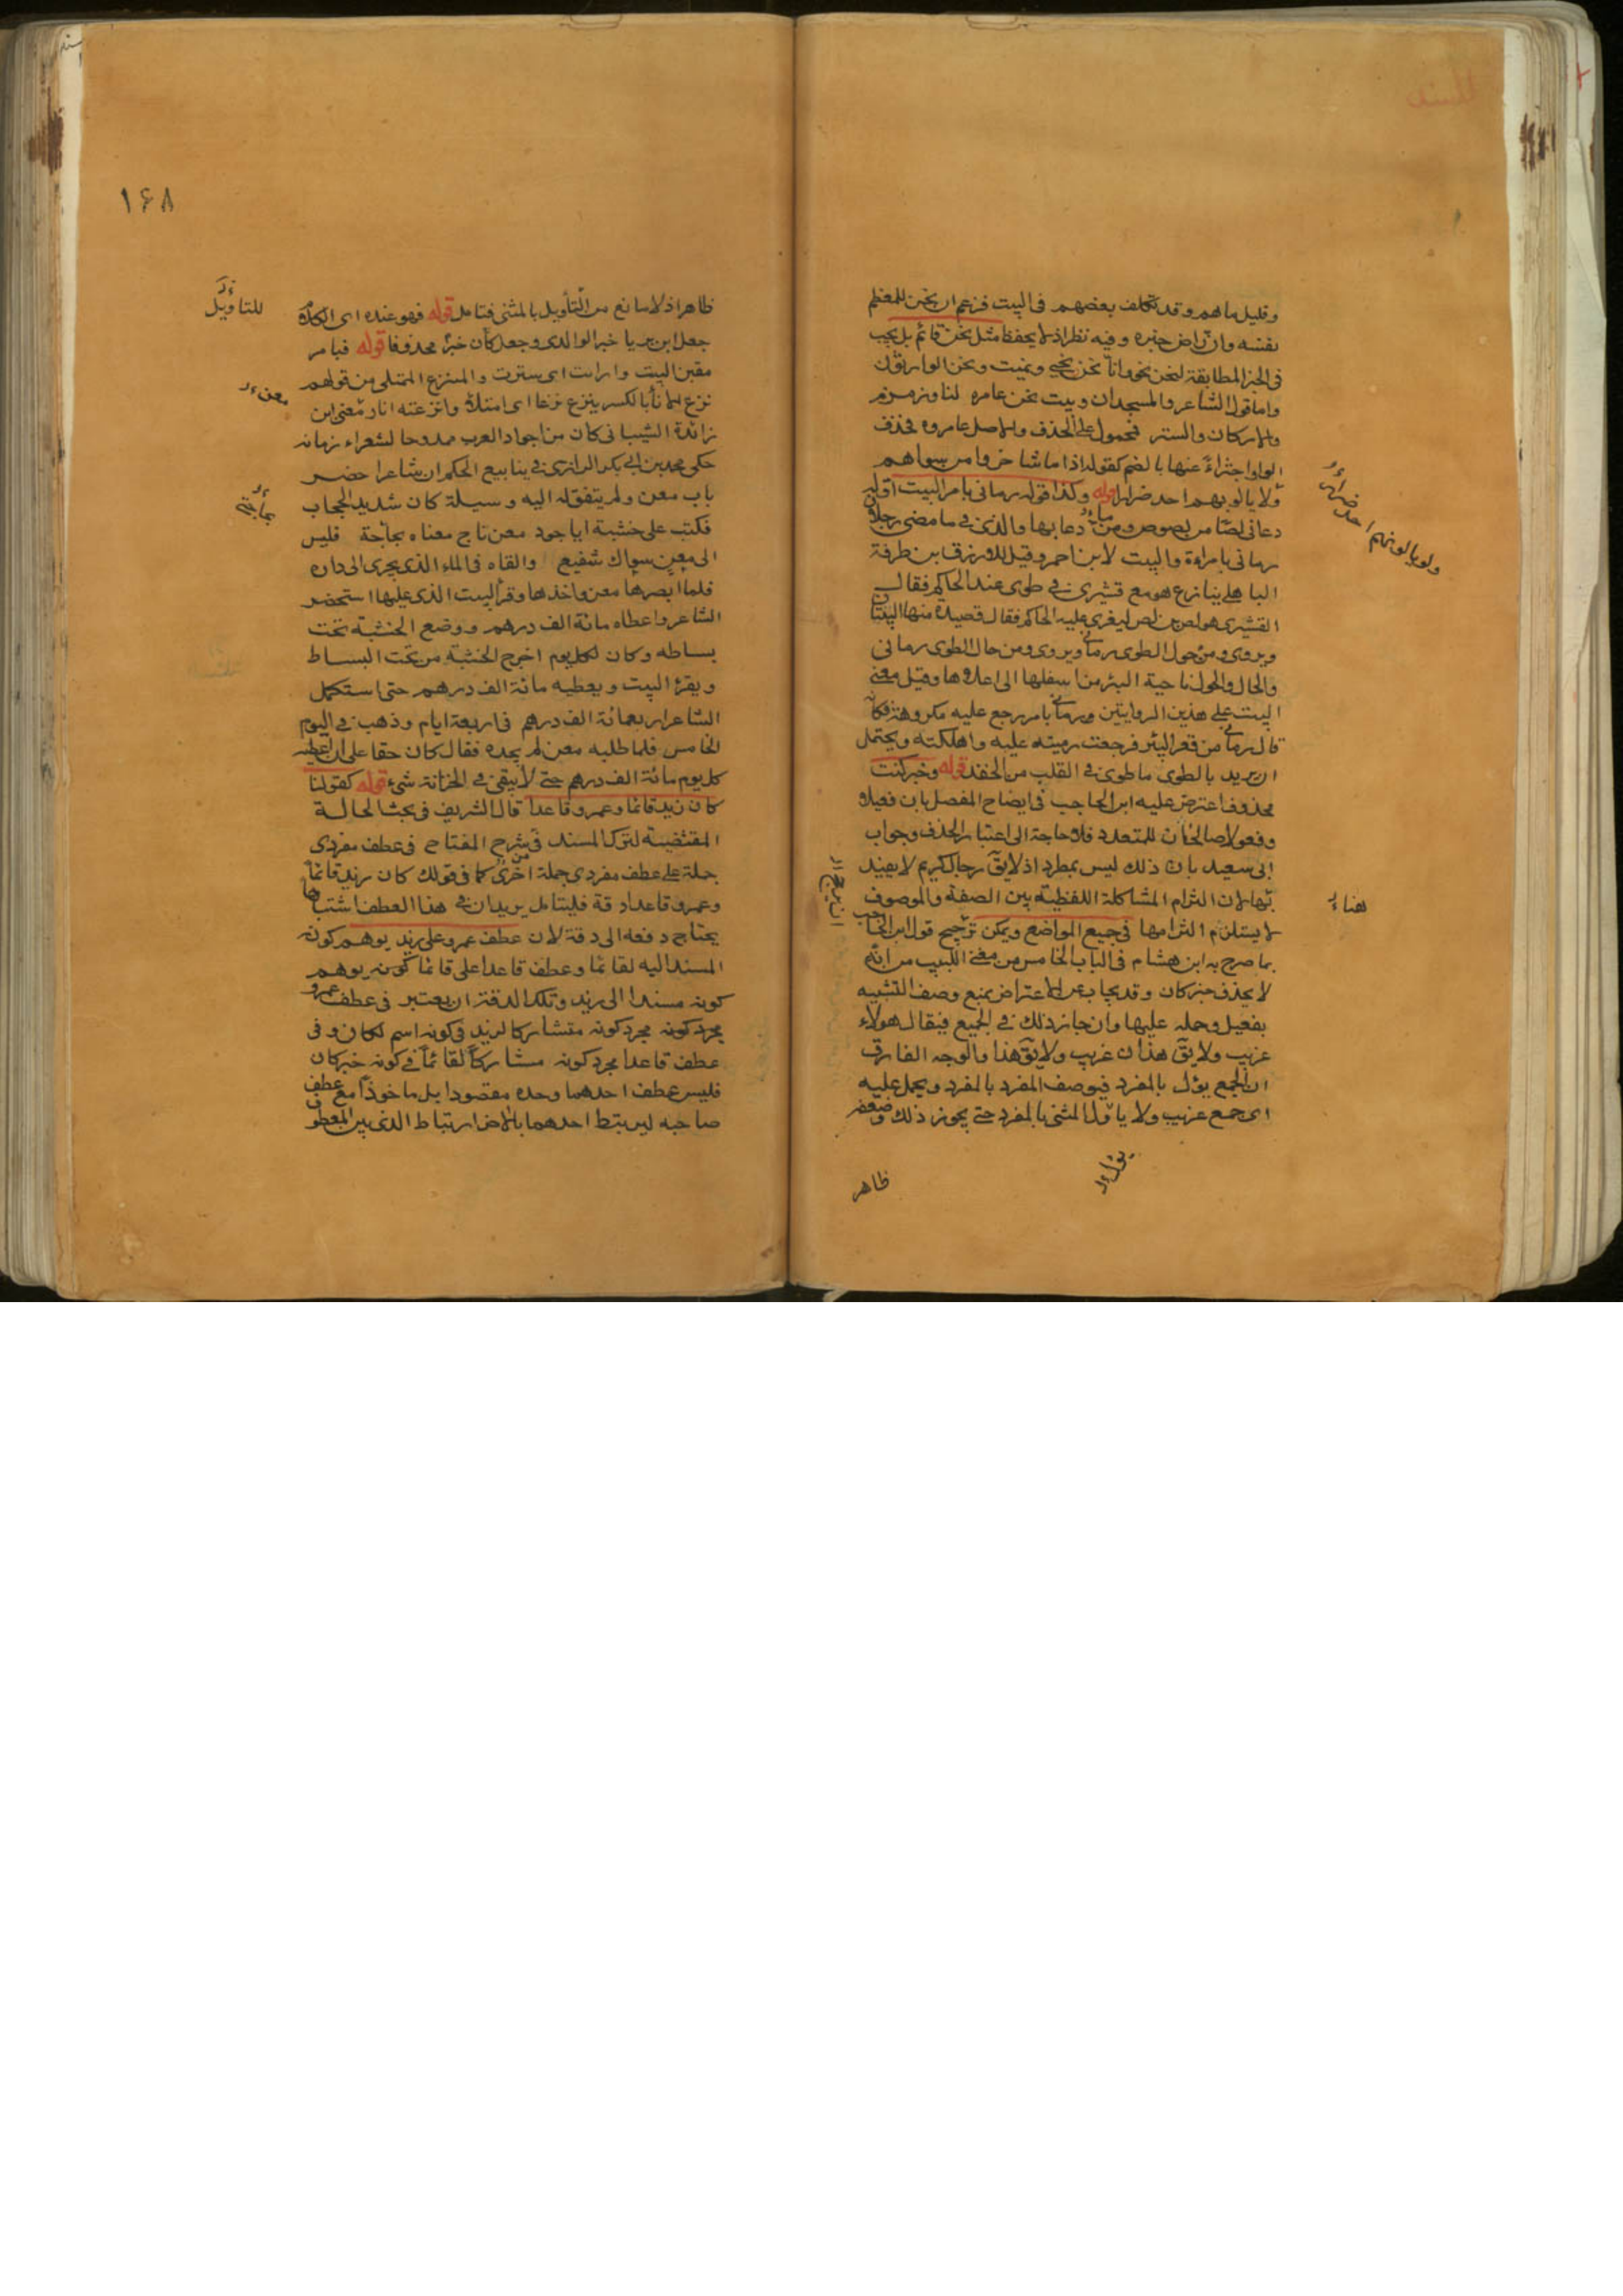 وقليل ماهم وقد تكلف بعضهم فى البيت فزعم ان نحن للمعظم
نفسه وان راض خبره وفيه نظر اذ لا يحفظ مثل نحن قائم بل يجب
فى الخبر المطابقة لنحن نحو وانا نحن نحيى ونميت ونحن الوارثون
واما قول الشاعر والمسجدان وبيت نحن عامره لنا وزمزم
والاركان والستر فمحمول على الحذف والاصل عامروه فحذف
الواو اجتزاء عنها بالضم كقوله اذا ما شاء ضروا من سواهم
ولا يالوبهم احد ضرارا قوله وكذا قوله رمانى بامر البيت اوله
دعانى لصا من لصوص وما دعا بها والدى فى ما مضى رجلان
رمانى بامر اة والبيت لابن احمر وقيل للازرق بن طرفة
الباهلى ينازع هو مع قشيرى فى طوى عند الحاكم فقال
القشيرى هو لص بن لص ليغرى عليه الحاكم فقال قصيدة منها البيتان
ويروى ومن جول الطوى رمانى ويروى ومن حال الطوى رمانى
والحال والجول ناحية البئر من اسفلها الى اعلاها وقيل معنى
البيت على هذين الروايتين ورمانى بامر رجع عليه مكروهه فكانه
قال رمانى من قعر البئر فرجعت رميته عليه واهلكته ويحتمل
ان يريد بالطوى ما طوى فى القلب من الحقد قوله وخبر كنت
محذوف اعترض عليه ابن الحاجب فى ايضاح المفصل بان فعيلا
وفعولا صالحان للمتعدد فلا حاجة الى اعتبار الحذف وجواب
ابى سعيد بان ذلك ليس بمطرد اذ لا يق رجال كريم لا يفيد
لان التزام المشاكلة اللفظية بين الصفة والموصوف
لا يستلزم التزامها فى جميع المواضع ويمكن ترجيح قول ابن الحاجب
بما صرح به ابن هشام فى الباب الخامس من مغنى اللبيب من انه
لا يحذف خبر كان وقد يجاب عن الاعتراض بمنع وصف التثنيه
بفعيل وحمله عليها وان جاز ذلك فى الجميع فيقال هولاء
غريب ولا يق هذان غريب ولا يق هذا والوجه الفارق
ان الجمع يؤل بالمفرد فيوصف المفرد بالمفرد ويحمل عليه
اى جمع غريب ولا ياول المثنى بالمفرد حتى يجوز ذلك وضعفه
ظاهر
ولا يالونهم احد ضرار
هناء
١۶٨
ظاهر اذ لا مانع من التأويل بالمثنى فتامل قوله فهو عنده اى الكلام
جعل ابن برى يا خبر الوالدى وجعل كان خبر محذوفا قوله فبامر
مقبن البيت وارات اى سترت والمنزع الممتلى من قولهم
نزع الاناء بالكسر ينزع نزعا اى امتلا وانزعته انا ومعنى ابن
زائدة الشيبانى كان من اجواد العرب ممدوحا لشعراء زمانه
حكى محمد بن ابى بكر الرازى فى ينابيع الحكم ان شاعرا حضر
باب معن ولم يتفق له اليه وسيلة كان شديد الحجاب
فكتب على خشبة ايا جود معن ناج معناه بحاجة فليس
الى معن سواك شفيع والقاه فى الماء الذى يجرى الى داره
فلما ابصرها معن واخذها وقرا البيت الذى عليها استحضر
الشاعر واعطاه مائة الف درهم ووضع الخشبة تحت
بساطه وكان لكل يوم اخرج الخشبة من تحت البساط
ويقرؤ البيت ويعطيه مائة الف درهم حتى استكمل
الشاعر اربعمائة الف درهم فى اربعة ايام وذهب فى اليوم
الخامس فلما طلبه معن لم يجده فقال كان حقا على ان اعطيه
كل يوم مائة الف درهم حتى لا يبقى فى الخزانة شىء قوله كقولنا
كان زيد قائما وعمرو قاعدا قال الشريف فى بحث الحالة
المقتضية لترك المسند فى شرح المفتاح فى عطف مفردى
جملة على عطف مفردى جملة اخرى كما فى قولك كان زيد قائما
وعمرو قاعدا دقة فليتامل يريد ان فى هذا العطف اشتباها
يحتاج دفعه الى دقة لان عطف عمرو على زيد يوهم كونه
المسند اليه لقائما وعطف قاعدا على قائما كونه يوهم
كونه مسندا الى زيد وتلك الدقة ان يعتبر فى عطف عمرو
مجرد كونه مجرد كونه متشاركا لزيد فى كونه اسم لكان وفى
عطف قاعدا مجرد كونه مشاركا لقائما فى كونه خبر كان
فليس عطف احدهما وحده مقصودا بل ماخوذا مع عطف
صاحبه ليرتبط احدهما بالاخر ارتباط الذى بين المعطوف
للتاويل
معن